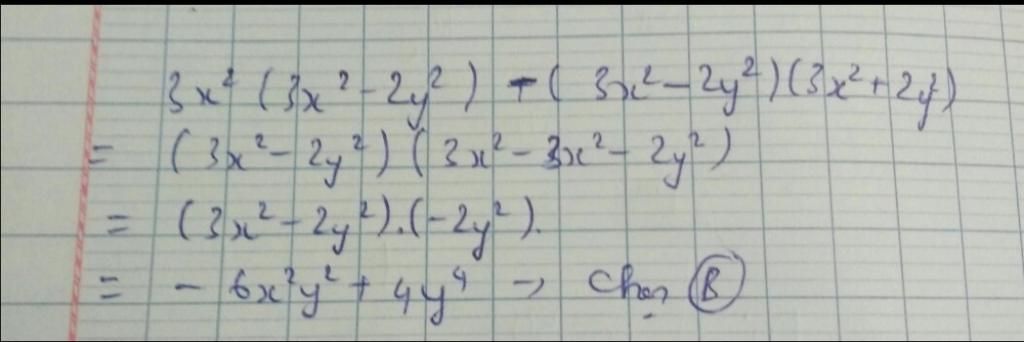 3x² (3x² - 2y²) - (3x² - 2y²)(3x² + 2y²)
= (3x² - 2y²)(3x² - 3x² - 2y²)
= (3x² - 2y²).(-2y²).
= - 6x²y² + 4y⁴ → Chọn B